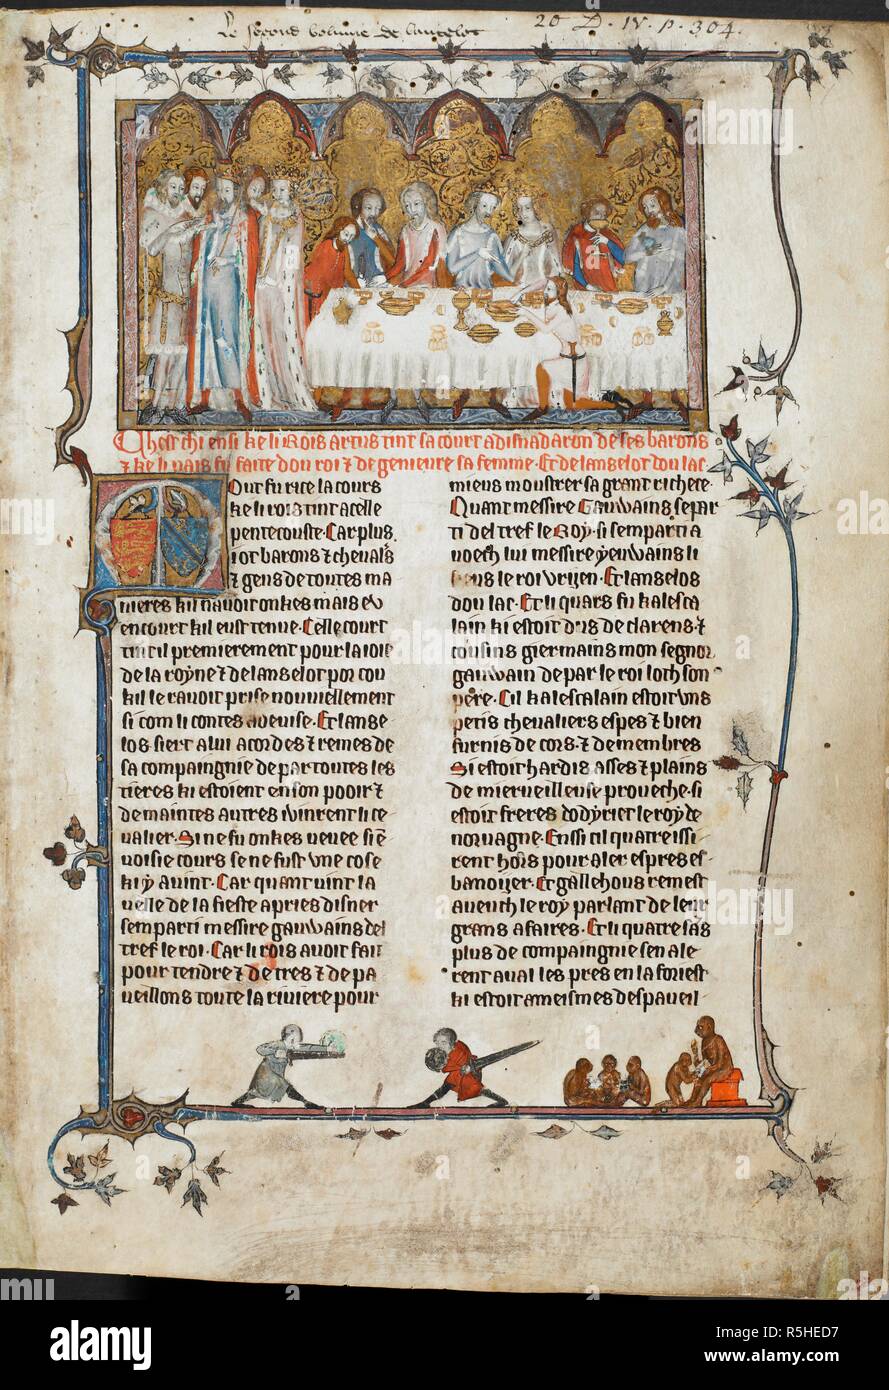 Le second volume de lancelot
20 D. IV. p. 304.
Chest chi ensi ke li Rois artus tint sa court a disnadaron de ses barons
⁊ ke li pais fu faite dou roi ⁊ de genieure sa femme. Et de lanselot dou lac
Out fu rice la cours
ke li rois tint a celle
pentecouste. Car plus
i ot barons ⁊ cheuals
⁊ gens de toutes ma
nieres kil nauoit onkes mais eu
en court kil eust tenue. Celle court
tint il premierement pour la ioie
de la royne ⁊ de lanselot por cou
kil le rauoit prise nouuellement
si com li contes a deuise. Et lanse
los siert a lui acordes ⁊ remes de
sa compaingnie de par toutes les
tieres ki estoient en son pooir ⁊
de maintes autres uinrent li ce
ualier. Si ne fu onkes ueue si en
uoisie cours se ne fust vne cose
ki y auint. Car quant uint la
uelle de la fieste apries disner
sem parti messire gauwains del
tref le roi. Car li rois auoit fait
pour tendre ⁊ de tres ⁊ de pa
ueillons toute la riuiere pour
mieus moustrer sa grant richete.
Quant messire Gauwains se par
ti del tref le Roy. si sem parti a
uoech lui messire yeuwains li
le roi vrijen. Et lanselos
dou lac. Et li quars fu kalesca
lain ki estoit dus de clarens. ⁊
cousins giermains mon segnor
gauwain de par le roi loth son
pere. Cil kalescalain estoit vns
petis cheualiers espes ⁊ bien
furnis de cors. ⁊ de membres
Si estoit hardis asses ⁊ plains
de mierueilleuse proueche. si
estoit freres dodyrier le roy de
noruagne. Ensi cil quatre issi
rent hors pour aler espres es
banoijer. Et galehous remest
auench le roy parlant de leur
grans afaires. Et li quatre sas
plus de compaingnie sen ale
rent aual les pres en la foriest
ki estoit a meismes des paueil
alamy
a
alamy stock photo
alamy
Image ID: R5HED7
www.alamy.com